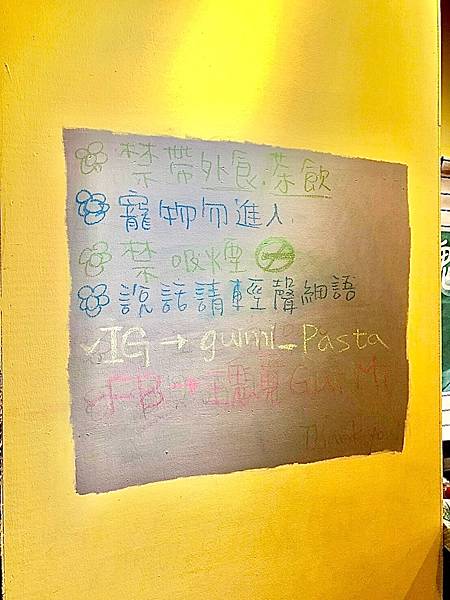 禁帶外食.茶飲
寵物勿進入
禁吸煙
說話請輕聲細語
IG→guimi_Pasta
FB→ Gui Mi
Thank you